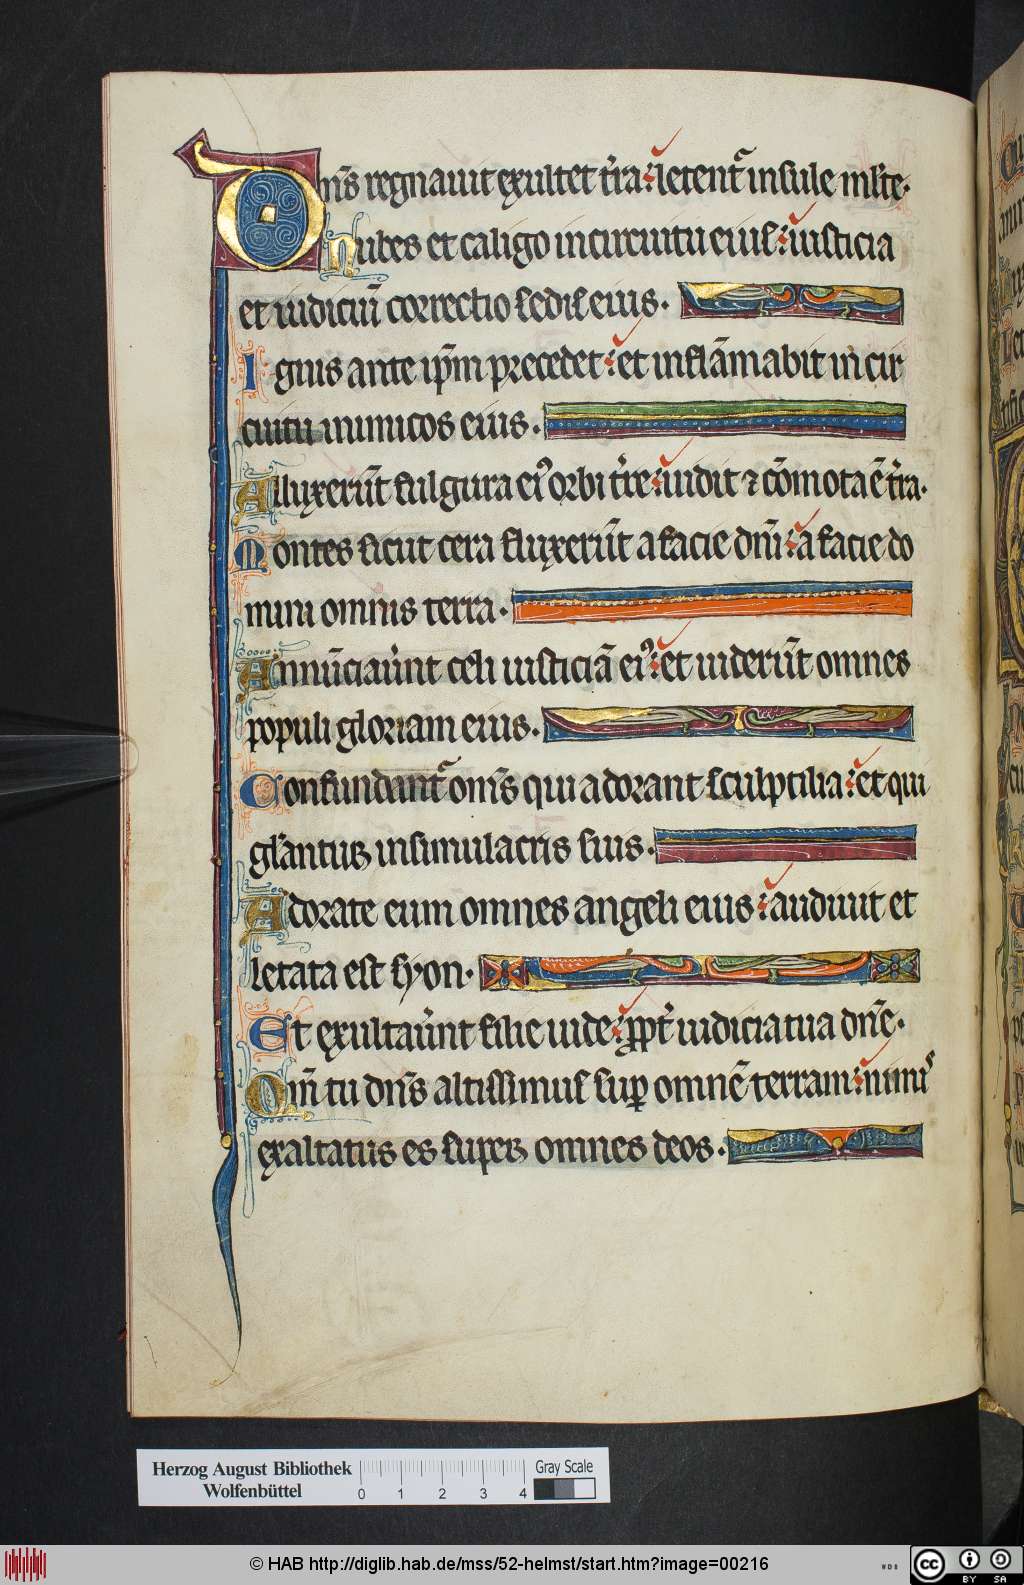 Dn̄s regnauit exultet t̄ra: letent᷑ insule ml̄te.
Nubes et caligo in circuitu eius: iusticia
et iudiciū correctio sedis eius.
Ignis ante ip̄m precedet: et inflāmabit in cir
cuitu inimicos eius.
Alluxerūt fulgura eiꝰ orbi t̄re: uidit ⁊ cōmota ē t̄ra.
Montes sicut cera fluxerūt a facie dn̄i: a facie do
mini omnis terra.
Annūciaue᷒nt celi iusticiā eiꝰ: et uiderūt omnes
populi gloriam eius.
Confundant᷑ om̄s qui adorant sculptilia: et qui
gl̄antur in simulacris suis.
Adorate eum omnes angeli eius: audiuit et
letata est syon.
Et exultaue᷒nt filie iude: ꝓpt̄ iudicia tua dn̄e.
Qm̄ tu dn̄s altissimus suꝑ omnē terram: nimis
exaltatus es super omnes deos.
Herzog August Bibliothek
Wolfenbüttel
0 1 2 3 4
Gray Scale
© HAB http://diglib.hab.de/mss/52-helmst/start.htm?image=00216
WDB
cc BY SA